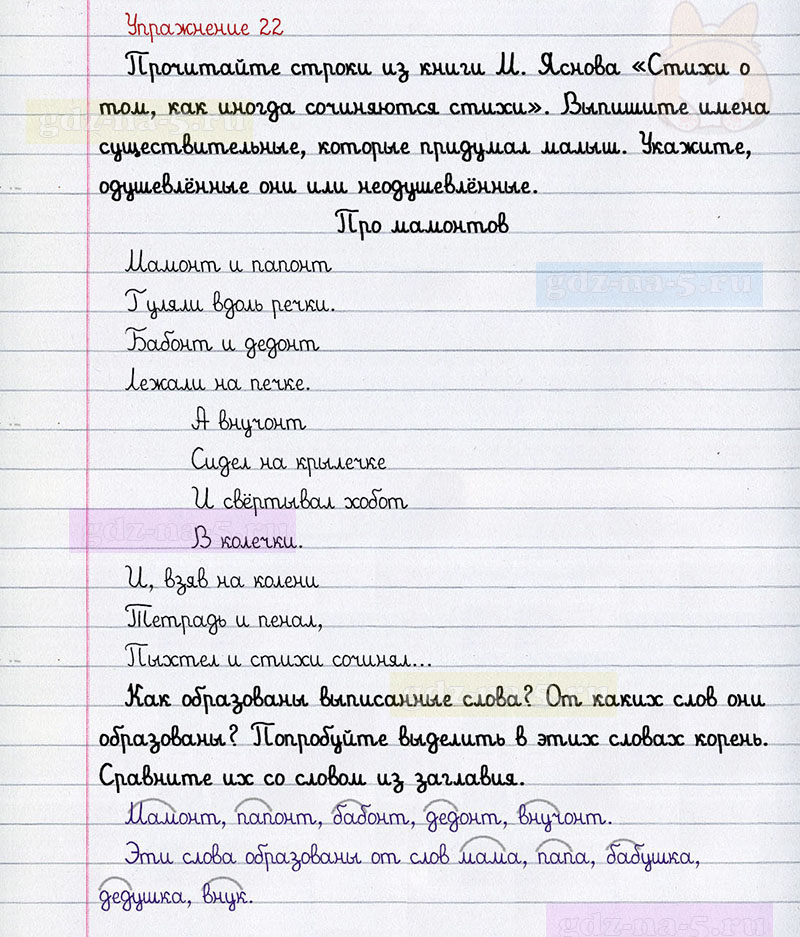 Упражнение 22
Прочитайте строки из книги М. Яснова «Стихи о
том, как иногда сочиняются стихи». Выпишите имена
gdz-na-5.ru
существительные, которые придумал малыш. Укажите,
одушевлённые они или неодушевлённые.
Про мамонтов
Мамонт и папонт
gdz-na-5.ru
Гуляли вдоль речки.
Бабонт и дедонт
Лежали на печке.
А внучонт
Сидел на крылечке
И свёртывал хобот
gdz-na-5.ru
В колечки.
И, взяв на колени
Тетрадь и пенал,
Пыхтел и стихи сочинял...
gdz-na-5.ru
Как образованы выписанные слова? От каких слов они
образованы? Попробуйте выделить в этих словах корень.
Сравните их со словом из заглавия.
Мамонт, папонт, бабонт, дедонт, внучонт.
Эти слова образованы от слов мама, папа, бабушка,
дедушка, внук.
gdz-na-5.ru